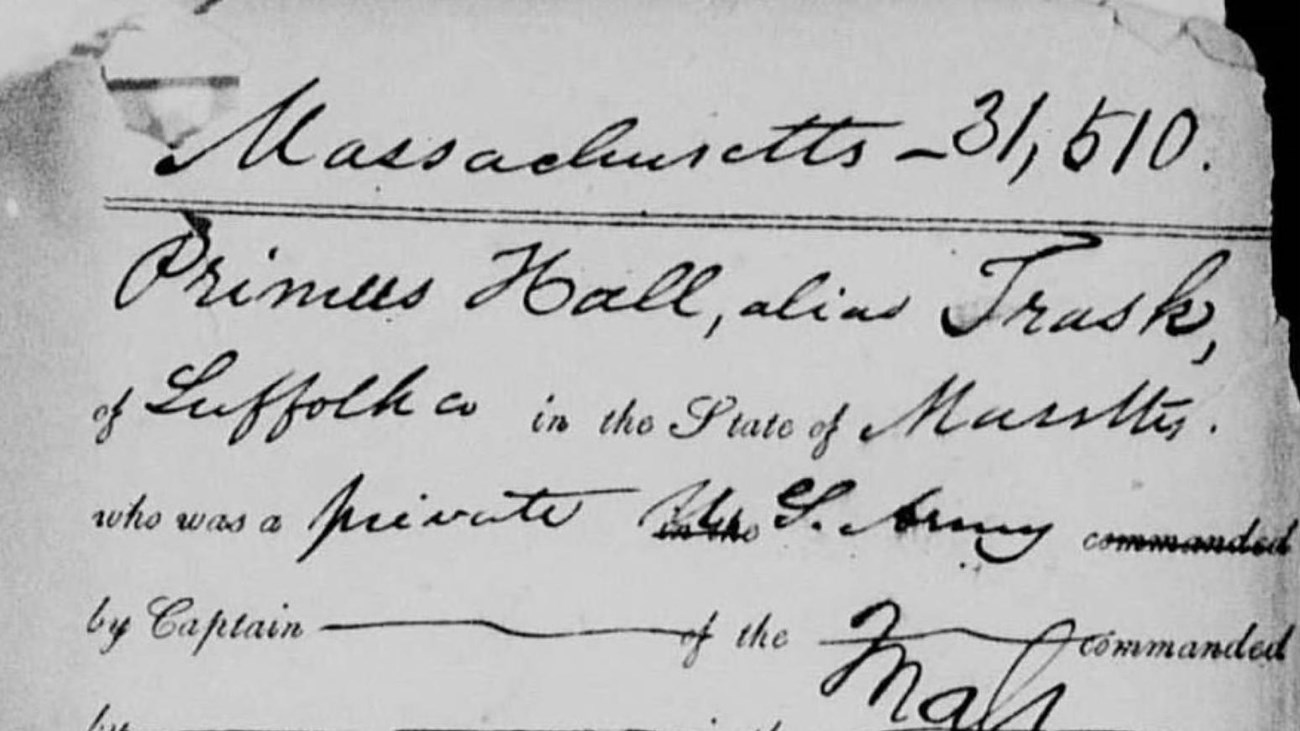 Massachusetts - 31,510.
Primus Hall, alias Trask,
of Suffolk co in the State of Massttts.
who was a private in the U. S. Army commanded
by Captain of the commanded
by in the